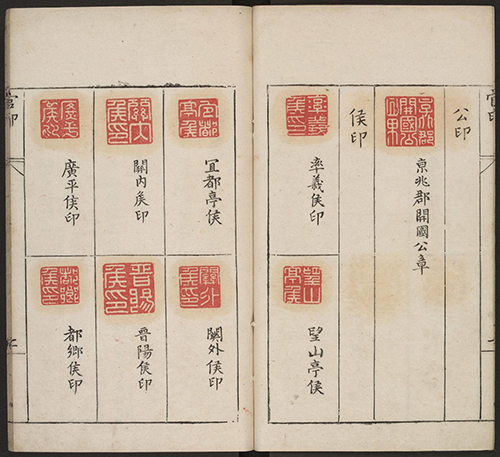 公印
京兆郡開國公章
侯印
率義侯印
望山亭侯
冝都亭侯
關外侯印
關内矦印
晉陽侯印
廣平侯印
都鄉侯印